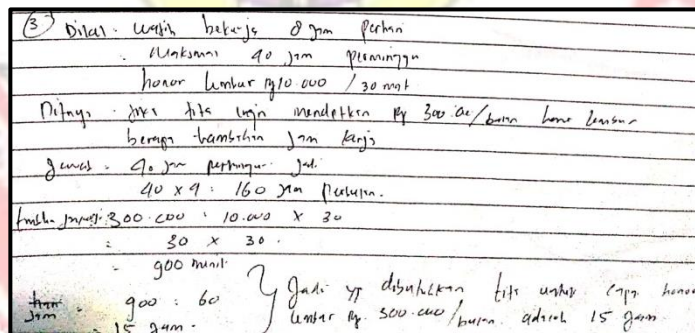 ③ Diket : wajib bekerja 8 jam perhari
: Maksimal 40 jam perminggu
honor lembur Rp 10.000 / 30 mnt
Ditnya : jika tita ingin mendptkan Rp 300.000/bulan honor lembur
berapa tambahan jam kerja
Jawab : 40 jam perminggu. Jadi
40 x 4 : 160 jam perbulan.
300.000 : 10.000 x 30
: 30 x 30.
: 900 menit
jam : 900 : 60
: 15 jam.
} Jadi yg dibutuhkan tita untuk capai honor
lembur Rp. 300.000/bulan adalah 15 jam.